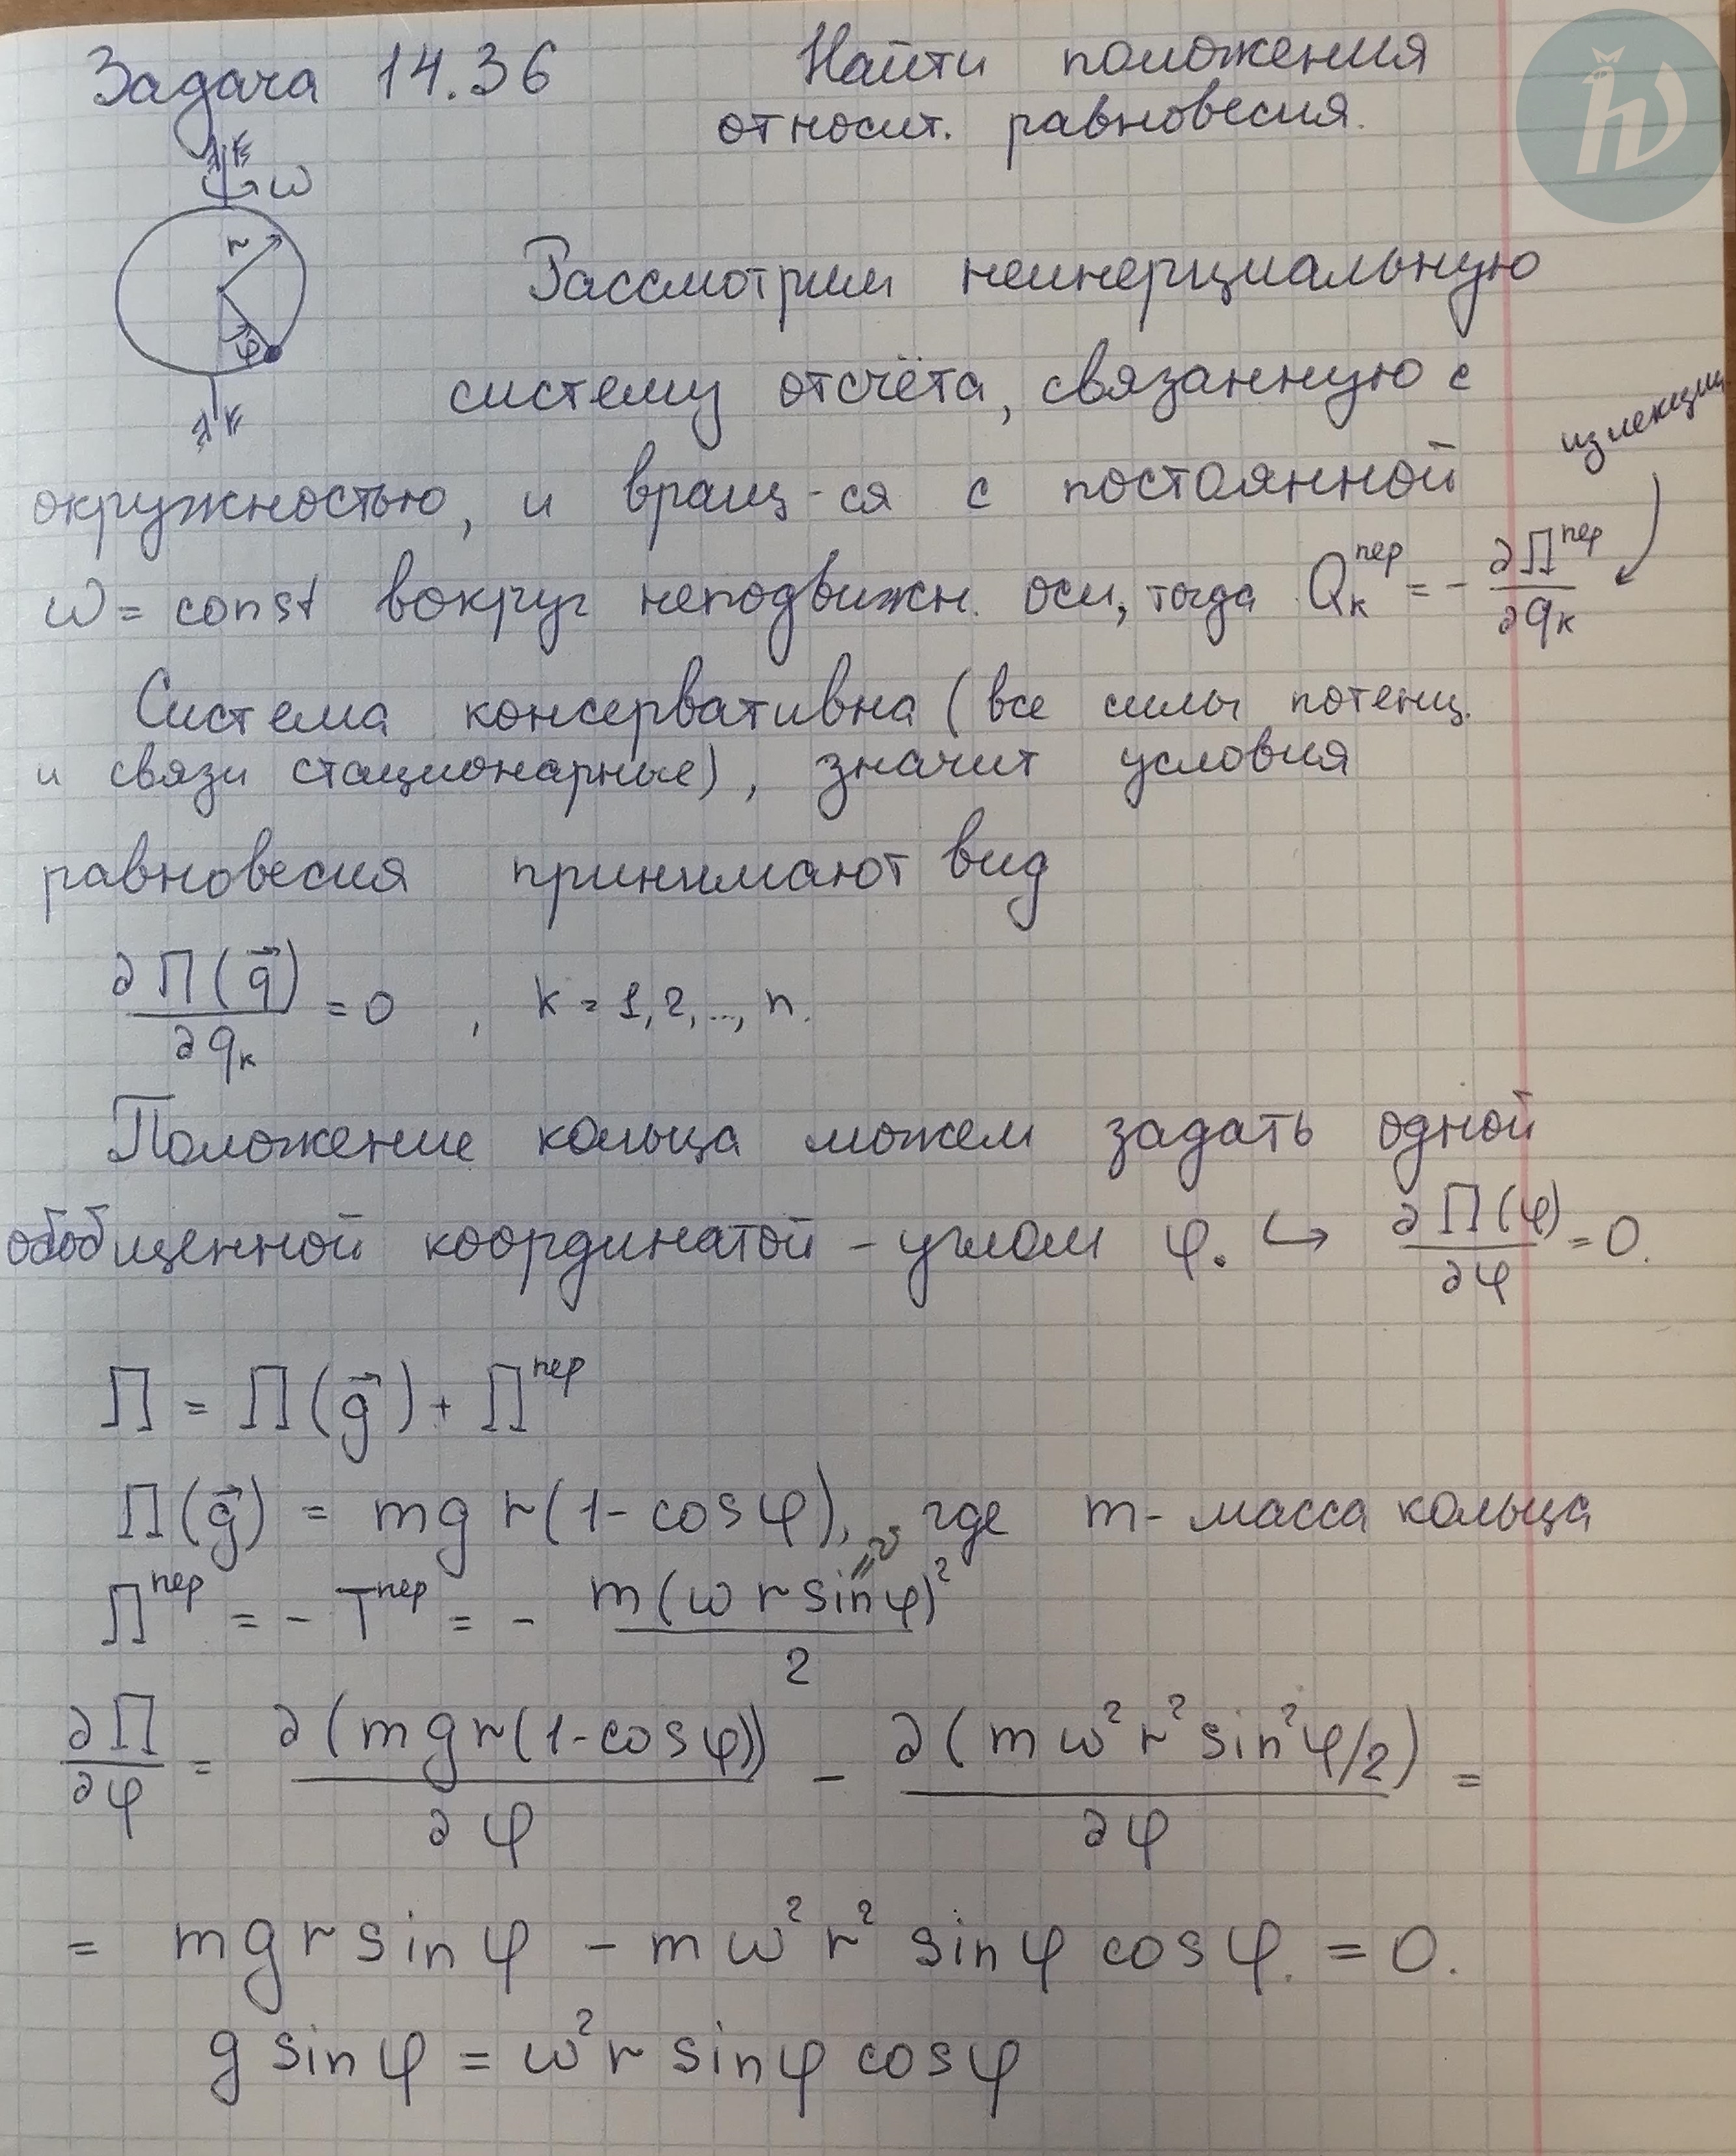 Задача 14.36
Найти положения
относит. равновесия.
ω
r
φ
Рассмотрим неинерциальную
систему отсчёта, связанную с
из лекции
окружностью, и вращ-ся с постоянной
ω = const вокруг неподвижн. оси, тогда Qₖᵖᵉʳ = - ∂Пᵖᵉʳ/∂qₖ
Система консервативна (все силы потенц.
и связи стационарные), значит условия
равновесия принимают вид
∂П(q⃗)/∂qₖ = 0 , k = 1, 2, ..., n.
Положение кольца можем задать одной
обобщенной координатой - углом φ. ↪ ∂П(φ)/∂φ = 0.
П = П(g⃗) + П^пер
П(g⃗) = mgr(1-cosφ), где m - масса кольца
П^пер = - T^пер = - m(ωr sinφ)²/2
∂П/∂φ = ∂(mgr(1-cosφ))/∂φ - ∂(mω²r² sin²φ/2)/∂φ =
= mgr sinφ - mω²r² sinφ cosφ = 0.
g sinφ = ω²r sinφ cosφ